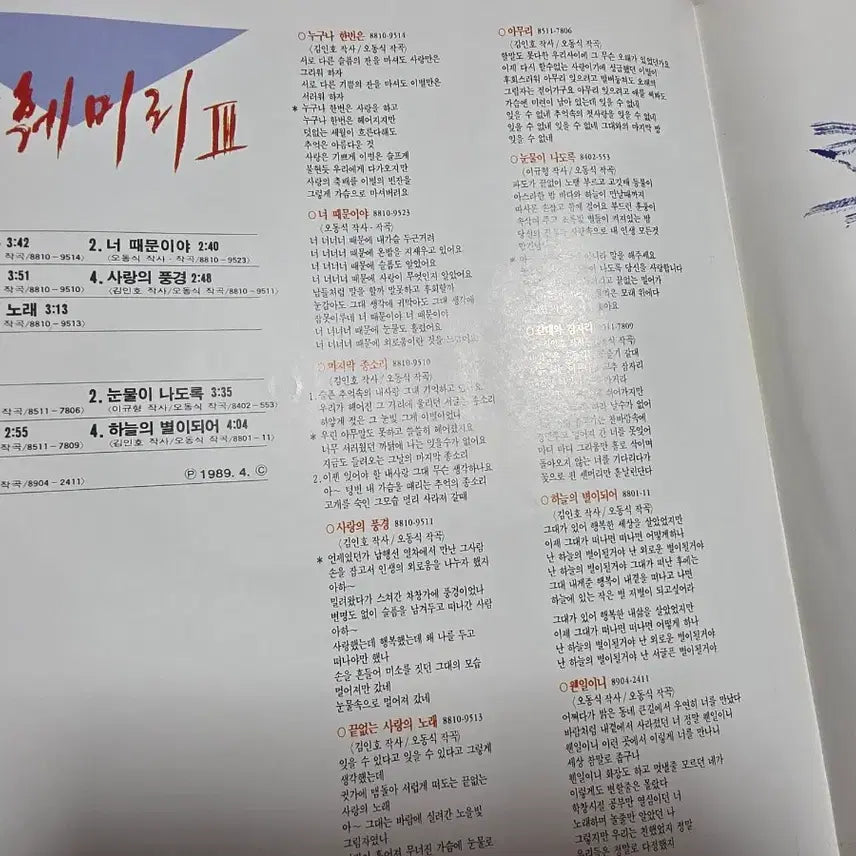 훼미리 III
3:42
작곡/8810-9514)
2. 너 때문이야 2:40
(오동식 작사·작곡/8810-9523)
3:51
작곡/8810-9510)
4. 사랑의 풍경 2:48
(김인호 작사/오동식 작곡/8810-9511)
노래 3:13
작곡/8810-9513)
작곡/8511-7806)
2. 눈물이 나도록 3:35
(이규형 작사/오동식 작곡/8402-553)
2:55
작곡/8511-7809)
4. 하늘의 별이되어 4:04
(김인호 작사/오동식 작곡/8801-11)
작곡/8904-2411)
Ⓟ 1989. 4. Ⓒ
○누구나 한번은 8810-9514
(김인호 작사/오동식 작곡)
서로 다른 슬픔의 잔을 마셔도 사랑만은
그리워 하자
서로 다른 기쁨의 잔을 마셔도 이별만은
서러워 하자
* 누구나 한번은 사랑을 하고
누구나 한번은 헤어지지만
덧없는 세월이 흐른다해도
추억은 아름다운 것
사랑은 기쁘게 이별은 슬프게
불현듯 우리에게 다가오지만
사랑의 축배를 이별의 빈잔을
그렇게 가슴으로 마셔버려요
○너 때문이야 8810-9523
(오동식 작사·작곡)
너 너너너 때문에 내가슴 두근거려
너 너너너 때문에 온밤을 지새우고 있어요
너 너너너 때문에 슬픔도 알았어요
너 너너너 때문에 사랑이 무엇인지 알았어요
남들처럼 말을 할까 말못하고 후회할까
눈감아도 그대 생각에 귀막아도 그대 생각에
잠못이루네 너 때문이야 너 때문이야
너 너너너 때문에 눈물도 흘렸어요
너 너너너 때문에 외로움이란 것을
○마지막 종소리 8810-9510
(김인호 작사/오동식 작곡)
1. 슬픈 추억속의 내사랑 그대 기억하고
우리가 헤어진 그 자리에 울리던 서글픈 종소리
하얗게 젖은 그 눈빛 그게 이별이었나
* 우린 아무말도 못하고 쓸쓸히 헤어졌지요
너무 서러웠던 까닭에 나는 잊을수가 없어요
지금도 들려오는 그날의 마지막 종소리
2. 이젠 잊어야 할 내사랑 그대 무슨 생각하나요
아~ 텅빈 내 가슴을 때리는 추억의 종소리
고개를 숙인 그모습 멀리 사라져 갈때
○사랑의 풍경 8810-9511
(김인호 작사/오동식 작곡)
* 언제였던가 남행선 열차에서 만난 그사람
손을 잡고서 인생의 외로움을 나누자 했지
아하~
밀려왔다가 스쳐간 차창가에 풍경이었나
변명도 없이 슬픔을 남겨두고 떠나간 사람
아하~
사랑했는데 행복했는데 왜 나를 두고
떠나야만 했나
손을 흔들어 미소를 짓던 그대의 모습
멀어져만 갔네
눈물속으로 멀어져 갔네
○끝없는 사랑의 노래 8810-9513
(김인호 작사/오동식 작곡)
잊을 수 있다고 잊을 수 있다고 그렇게
생각했는데
귓가에 맴돌아 서럽게 떠도는 끝없는
사랑의 노래
아~ 그대는 바람에 실려간 노을빛
그림자였나
흩어져 무너진 가슴에 눈물로
○아무리 8511-7806
(김인호 작사/오동식 작곡)
할말도 못다한 우리사이에 그 무슨 오해가 있었던가요
이제 다시 할수없는 사랑이기에 성급했던 이별이
후회스러워 아무리 잊으려고
그림자는 걷어가구요 아무리 잊으려고 애를 써봐도
가슴엔 미련이 남아 있는데 잊을 수 없네
잊을 수 없네 추억속의 첫사랑을 잊을 수 없네
잊을 수 없네 잊을 수 없네 그대와의 마지막 밤
잊을 수 없네
○눈물이 나도록 8402-553
(이규형 작사/오동식 작곡)
파도가 끝없이 노랠 부르고 고깃배 등불이
아스라한 밤 바다와 하늘이 만날때까지
따사론 손잡고 함께 걸어요 부드런 훈풍이
별들이 켜지있는 밤
사랑속으로 내 인생 모든것
말을 해주세요
나도록 당신을 사랑합니다
끝없는 멀어가
모래 위에다
7809
작곡)
갈대
잠자리
○하늘의 별이되어 8801-11
(김인호 작사/오동식 작곡)
그대가 있어 행복한 세상을 살았었지만
이제 그대가 떠나면 떠나면 어떻게하나
난 하늘의 별이될거야 난 외로운 별이될거야
난 하늘의 별이될거야 그대가 떠난 후에는
그대 내게준 행복이 내곁을 떠나고 나면
하늘에 있는 작은 별 저별이 되고싶어라
그대가 있어 행복한 내삶을 살았었지만
이제 그대가 떠나면 떠나면 어떻게 하나
난 하늘의 별이될거야 난 외로운 별이될거야
난 하늘의 별이될거야 난 서글픈 별이될거야
○웬일이니 8904-2411
(오동식 작사/오동식 작곡)
어쩌다가 밝은 동네 큰길에서 우연히 너를 만났다
바람처럼 내곁에서 사라졌던 너 정말 웬일이니
웬일이니 이런 곳에서 이렇게 너를 만나니
세상 참말로 좁구나
웬일이니 화장도 하고 멋낼줄 모르던 네가
이렇게도 변할줄은 몰랐다
학창시절 공부만 열심이던 너
노래하며 놀줄만 알았던 나
그렇지만 우리는 친했었지 정말
우리들은 정말로 다정했지